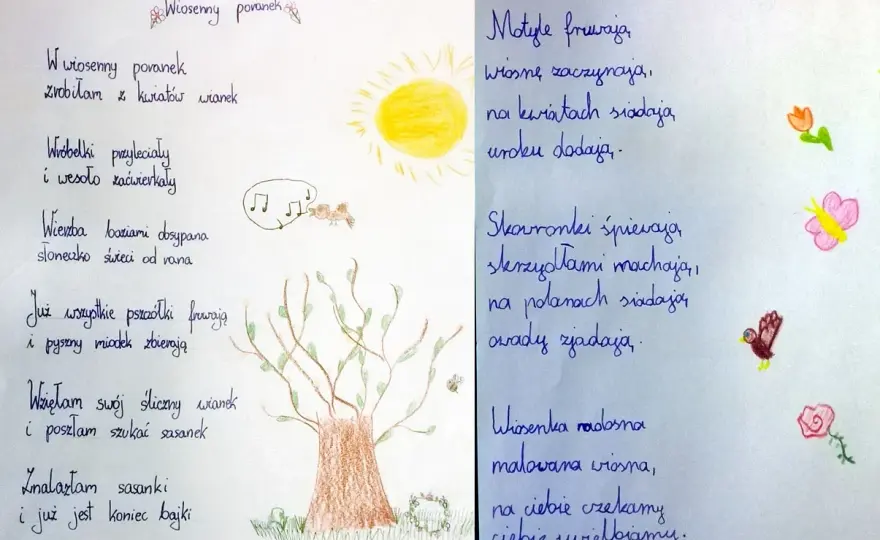 Wiosenny poranek
W wiosenny poranek
zrobiłam z kwiatów wianek
Wróbelki przyleciały
i wesoło zaćwierkały
Wierzba baziami obsypana
słoneczko świeci od rana
Już wszystkie pszczółki fruwają
i pyszny miodek zbierają
Wzięłam swój śliczny wianek
i poszłam szukać sasanek
Znalazłam sasanki
i już jest koniec bajki
Motyle fruwają
wiosnę zaczynają,
na kwiatach siadają
uroku dodają.
Skowronki śpiewają
skrzydłami machają,
na polanach siadają
owady zjadają.
Wiosenka radosna
malowana wiosna,
na ciebie czekamy
ciebie uwielbiamy.